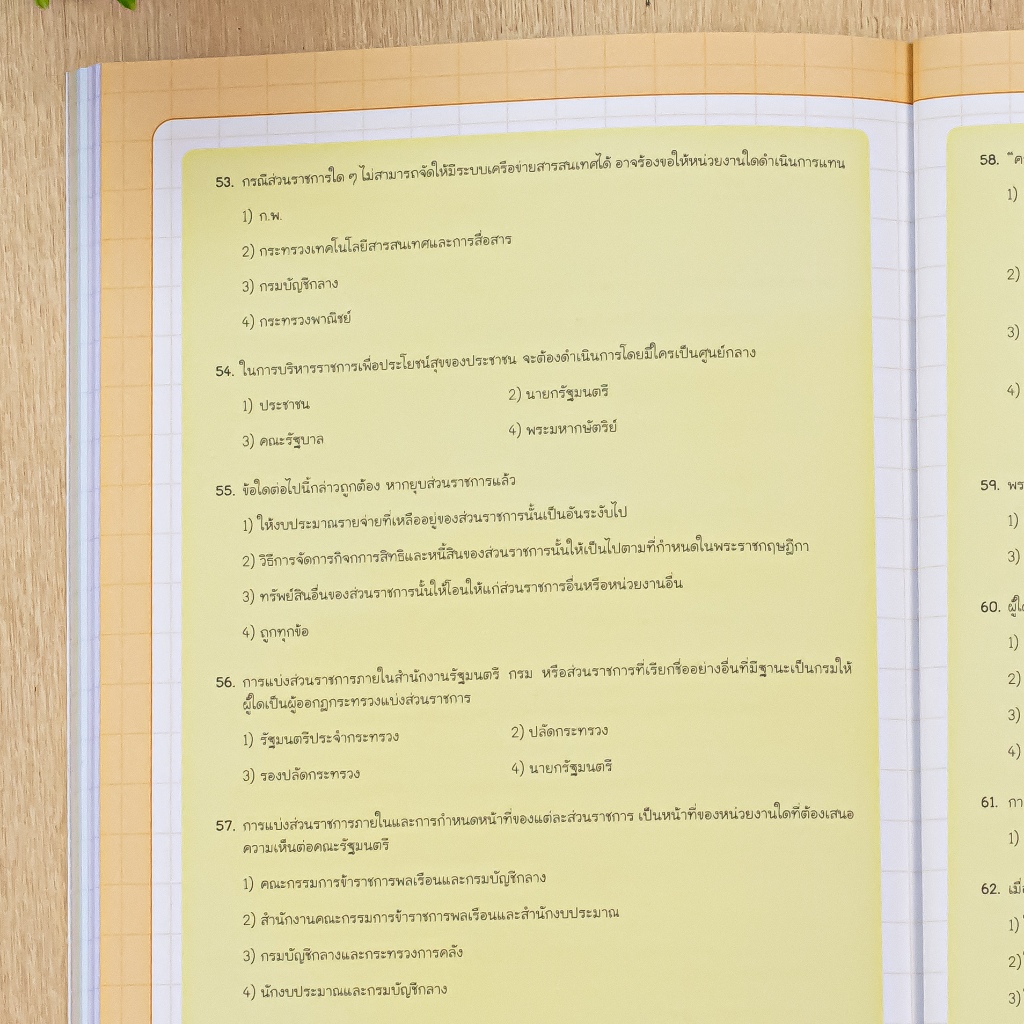 53. กรณีส่วนราชการใด ๆ ไม่สามารถจัดให้มีระบบเครือข่ายสารสนเทศได้ อาจร้องขอให้หน่วยงานใดดำเนินการแทน
1) ก.พ.
2) กระทรวงเทคโนโลยีสารสนเทศและการสื่อสาร
3) กรมบัญชีกลาง
4) กระทรวงพาณิชย์
54. ในการบริหารราชการเพื่อประโยชน์สุขของประชาชน จะต้องดำเนินการโดยมีใครเป็นศูนย์กลาง
1) ประชาชน 2) นายกรัฐมนตรี
3) คณะรัฐบาล 4) พระมหากษัตริย์
55. ข้อใดต่อไปนี้กล่าวถูกต้อง หากยุบส่วนราชการแล้ว
1) ให้งบประมาณรายจ่ายที่เหลืออยู่ของส่วนราชการนั้นเป็นอันระงับไป
2) วิธีการจัดการกิจกการสิทธิและหนี้สินของส่วนราชการนั้นให้เป็นไปตามที่กำหนดในพระราชกฤษฎีกา
3) ทรัพย์สินอื่นของส่วนราชการนั้นให้โอนให้แก่ส่วนราชการอื่นหรือหน่วยงานอื่น
4) ถูกทุกข้อ
56. การแบ่งส่วนราชการภายในสำนักงานรัฐมนตรี กรม หรือส่วนราชการที่เรียกชื่ออย่างอื่นที่มีฐานะเป็นกรมให้
ผู้ใดเป็นผู้ออกกฎกระทรวงแบ่งส่วนราชการ
1) รัฐมนตรีประจำกระทรวง 2) ปลัดกระทรวง
3) รองปลัดกระทรวง 4) นายกรัฐมนตรี
57. การแบ่งส่วนราชการภายในและการกำหนดหน้าที่ของแต่ละส่วนราชการ เป็นหน้าที่ของหน่วยงานใดที่ต้องเสนอ
ความเห็นต่อคณะรัฐมนตรี
1) คณะกรรมการข้าราชการพลเรือนและกรมบัญชีกลาง
2) สำนักงานคณะกรรมการข้าราชการพลเรือนและสำนักงบประมาณ
3) กรมบัญชีกลางและกระทรวงการคลัง
4) นักงบประมาณและกรมบัญชีกลาง
58.
1)
2)
3)
4)
59. พร
1)
3)
60.
1)
2)
3)
4)
61. กา
1)
62.
1)
2)
3)